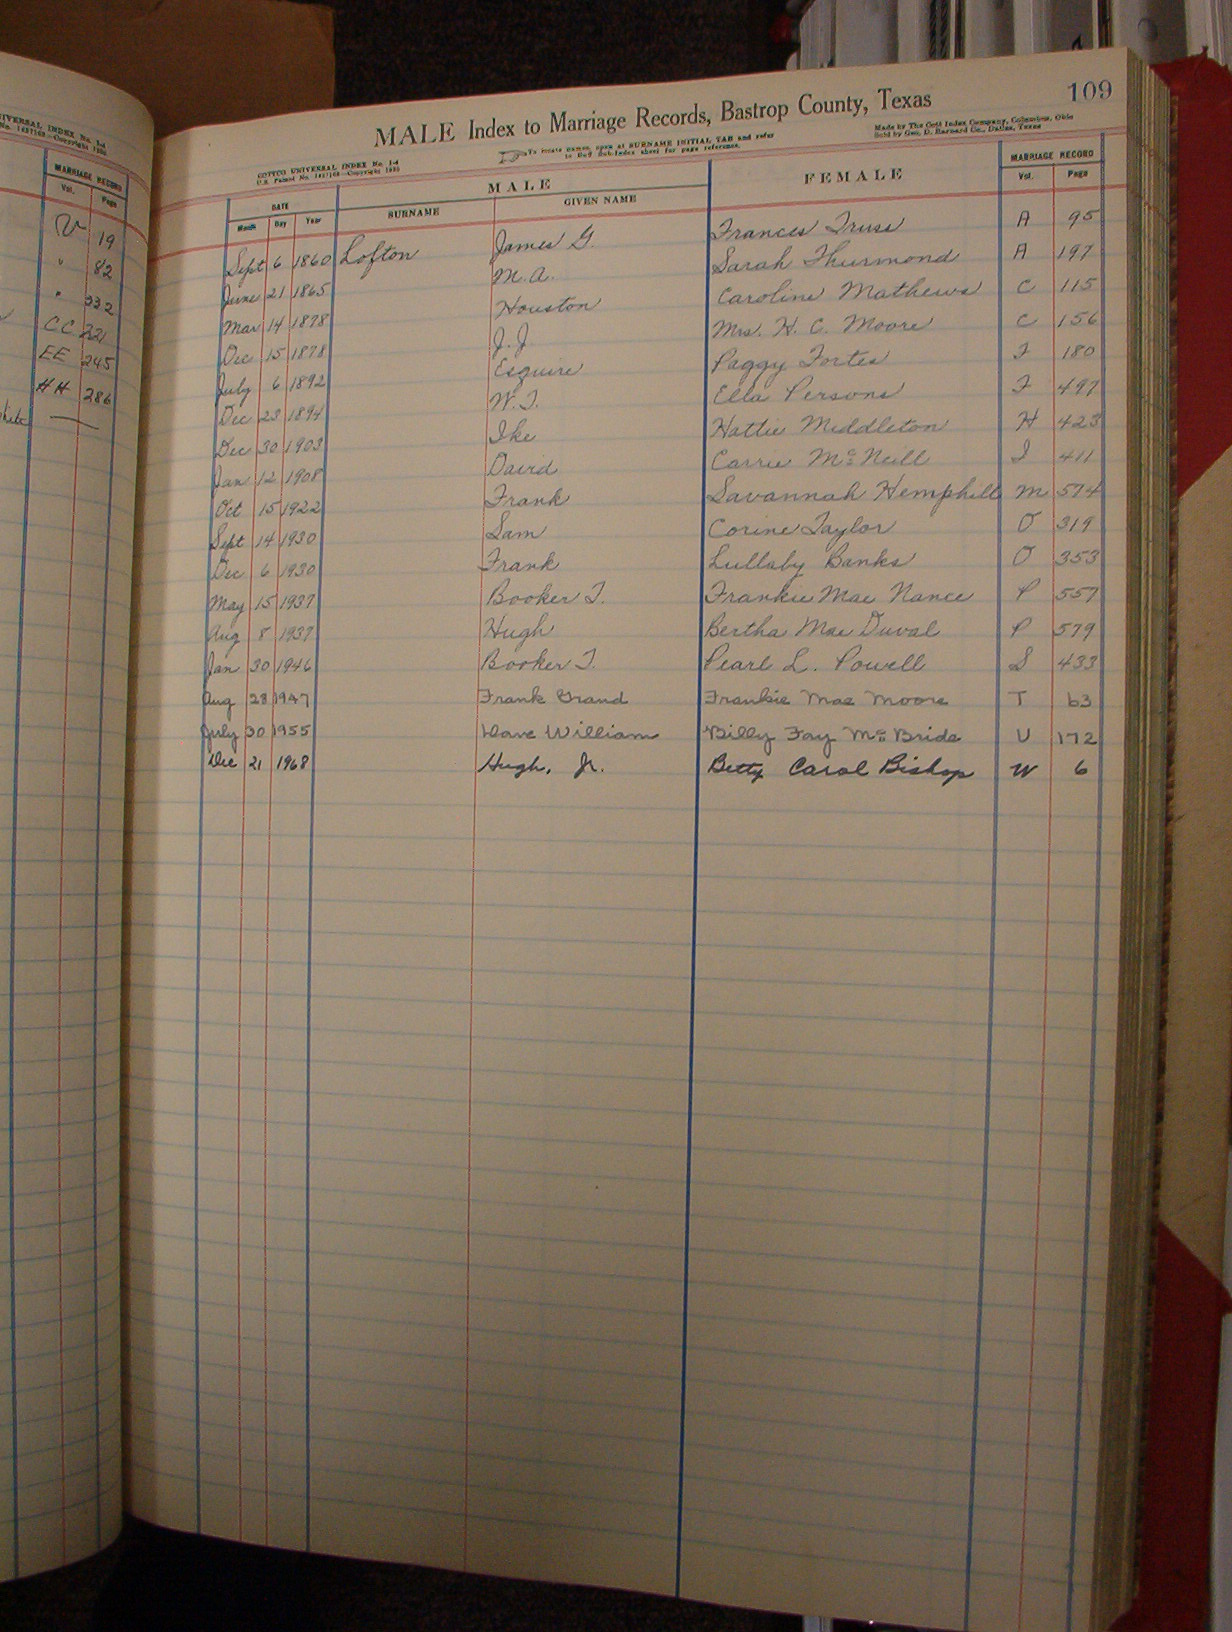 MARRIAGE RECORD
Vol. Page
V 19
" 82
" 332
CC 221
EE 245
HH 286
109
MALE Index to Marriage Records, Bastrop County, Texas
COTTCO UNIVERSAL INDEX No. 1-4
To locate names, open at SURNAME INITIAL TAB and refer
Made by The Cott Index Company, Columbus, Ohio
Sold by Geo. D. Barnard Co., Dallas, Texas
DATE MALE FEMALE MARRIAGE RECORD
Month Day Year SURNAME GIVEN NAME Vol. Page
Sept 6 1860 Lofton James G. Frances Truss A 95
June 21 1865 M.A. Sarah Thurmond A 197
Mar 14 1878 Houston Caroline Mathews C 115
Dec 15 1878 J.J. Mrs. H. C. Moore C 156
July 6 1892 Esquire Paggy Fortes F 180
Dec 23 1894 W.T. Ella Persons F 497
Dec 30 1903 Ike Hattie Middleton H 423
Jan 12 1908 David Carrie McNeill I 411
Oct 15 1922 Frank Savannah Hemphill M 574
Sept 14 1930 Sam Corine Taylor O 319
Dec 6 1930 Frank Lullaby Banks O 353
May 15 1937 Booker T. Frankie Mae Nance P 557
Aug 8 1937 Hugh Bertha Mae Duval P 579
Jan 30 1946 Booker T. Pearl L. Powell S 433
Aug 28 1947 Frank Grand Frankie Mae Moore T 63
July 30 1955 Dave William Billy Fay McBride U 172
Dec 21 1968 Hugh, Jr. Betty Carol Bishop W 6